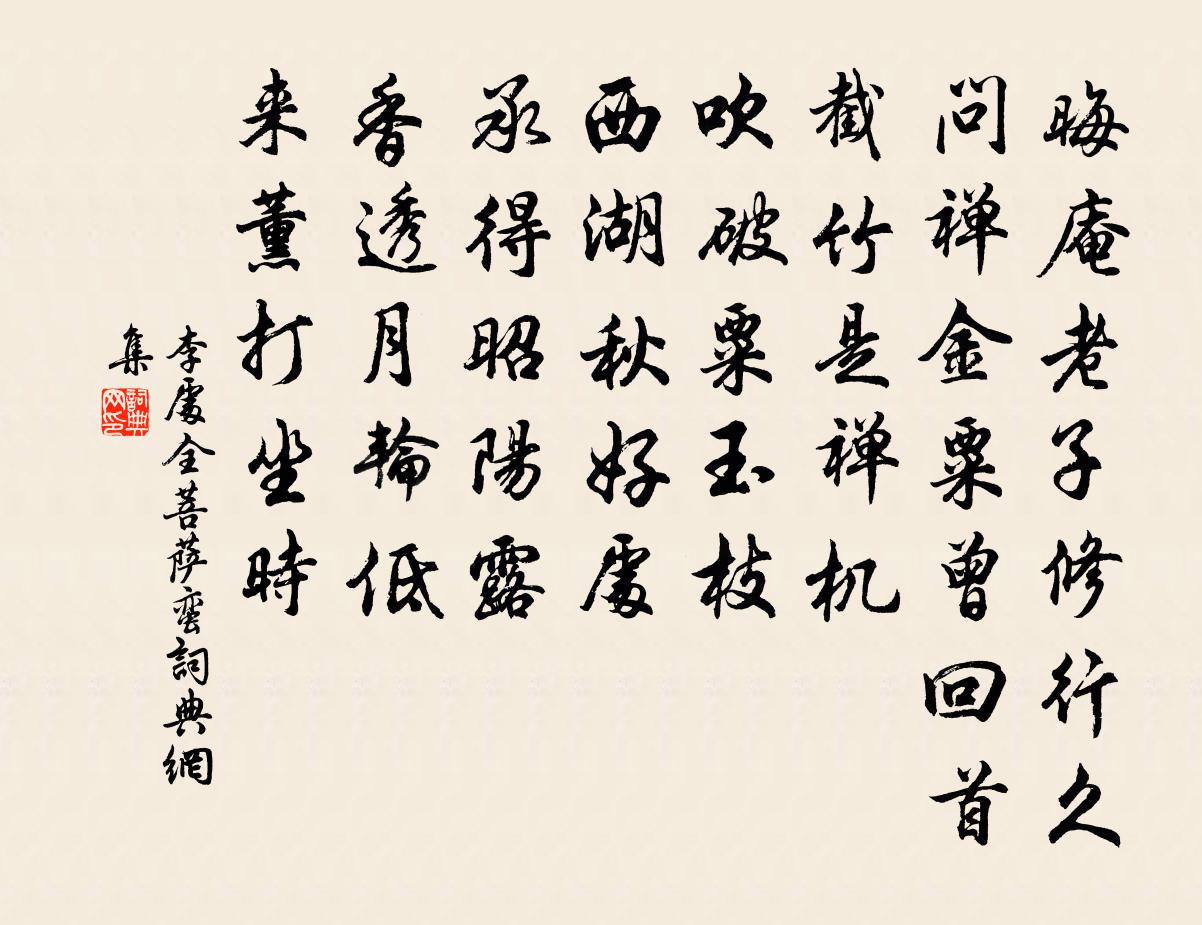 晦庵老子修行久
問禅金粟曾回首
截竹是禅机
吹破粟玉枝
西湖秋好處
承得昭陽露
香透月輪低
来薰打坐時
李處全菩萨蛮詞典網
集
詞典网印